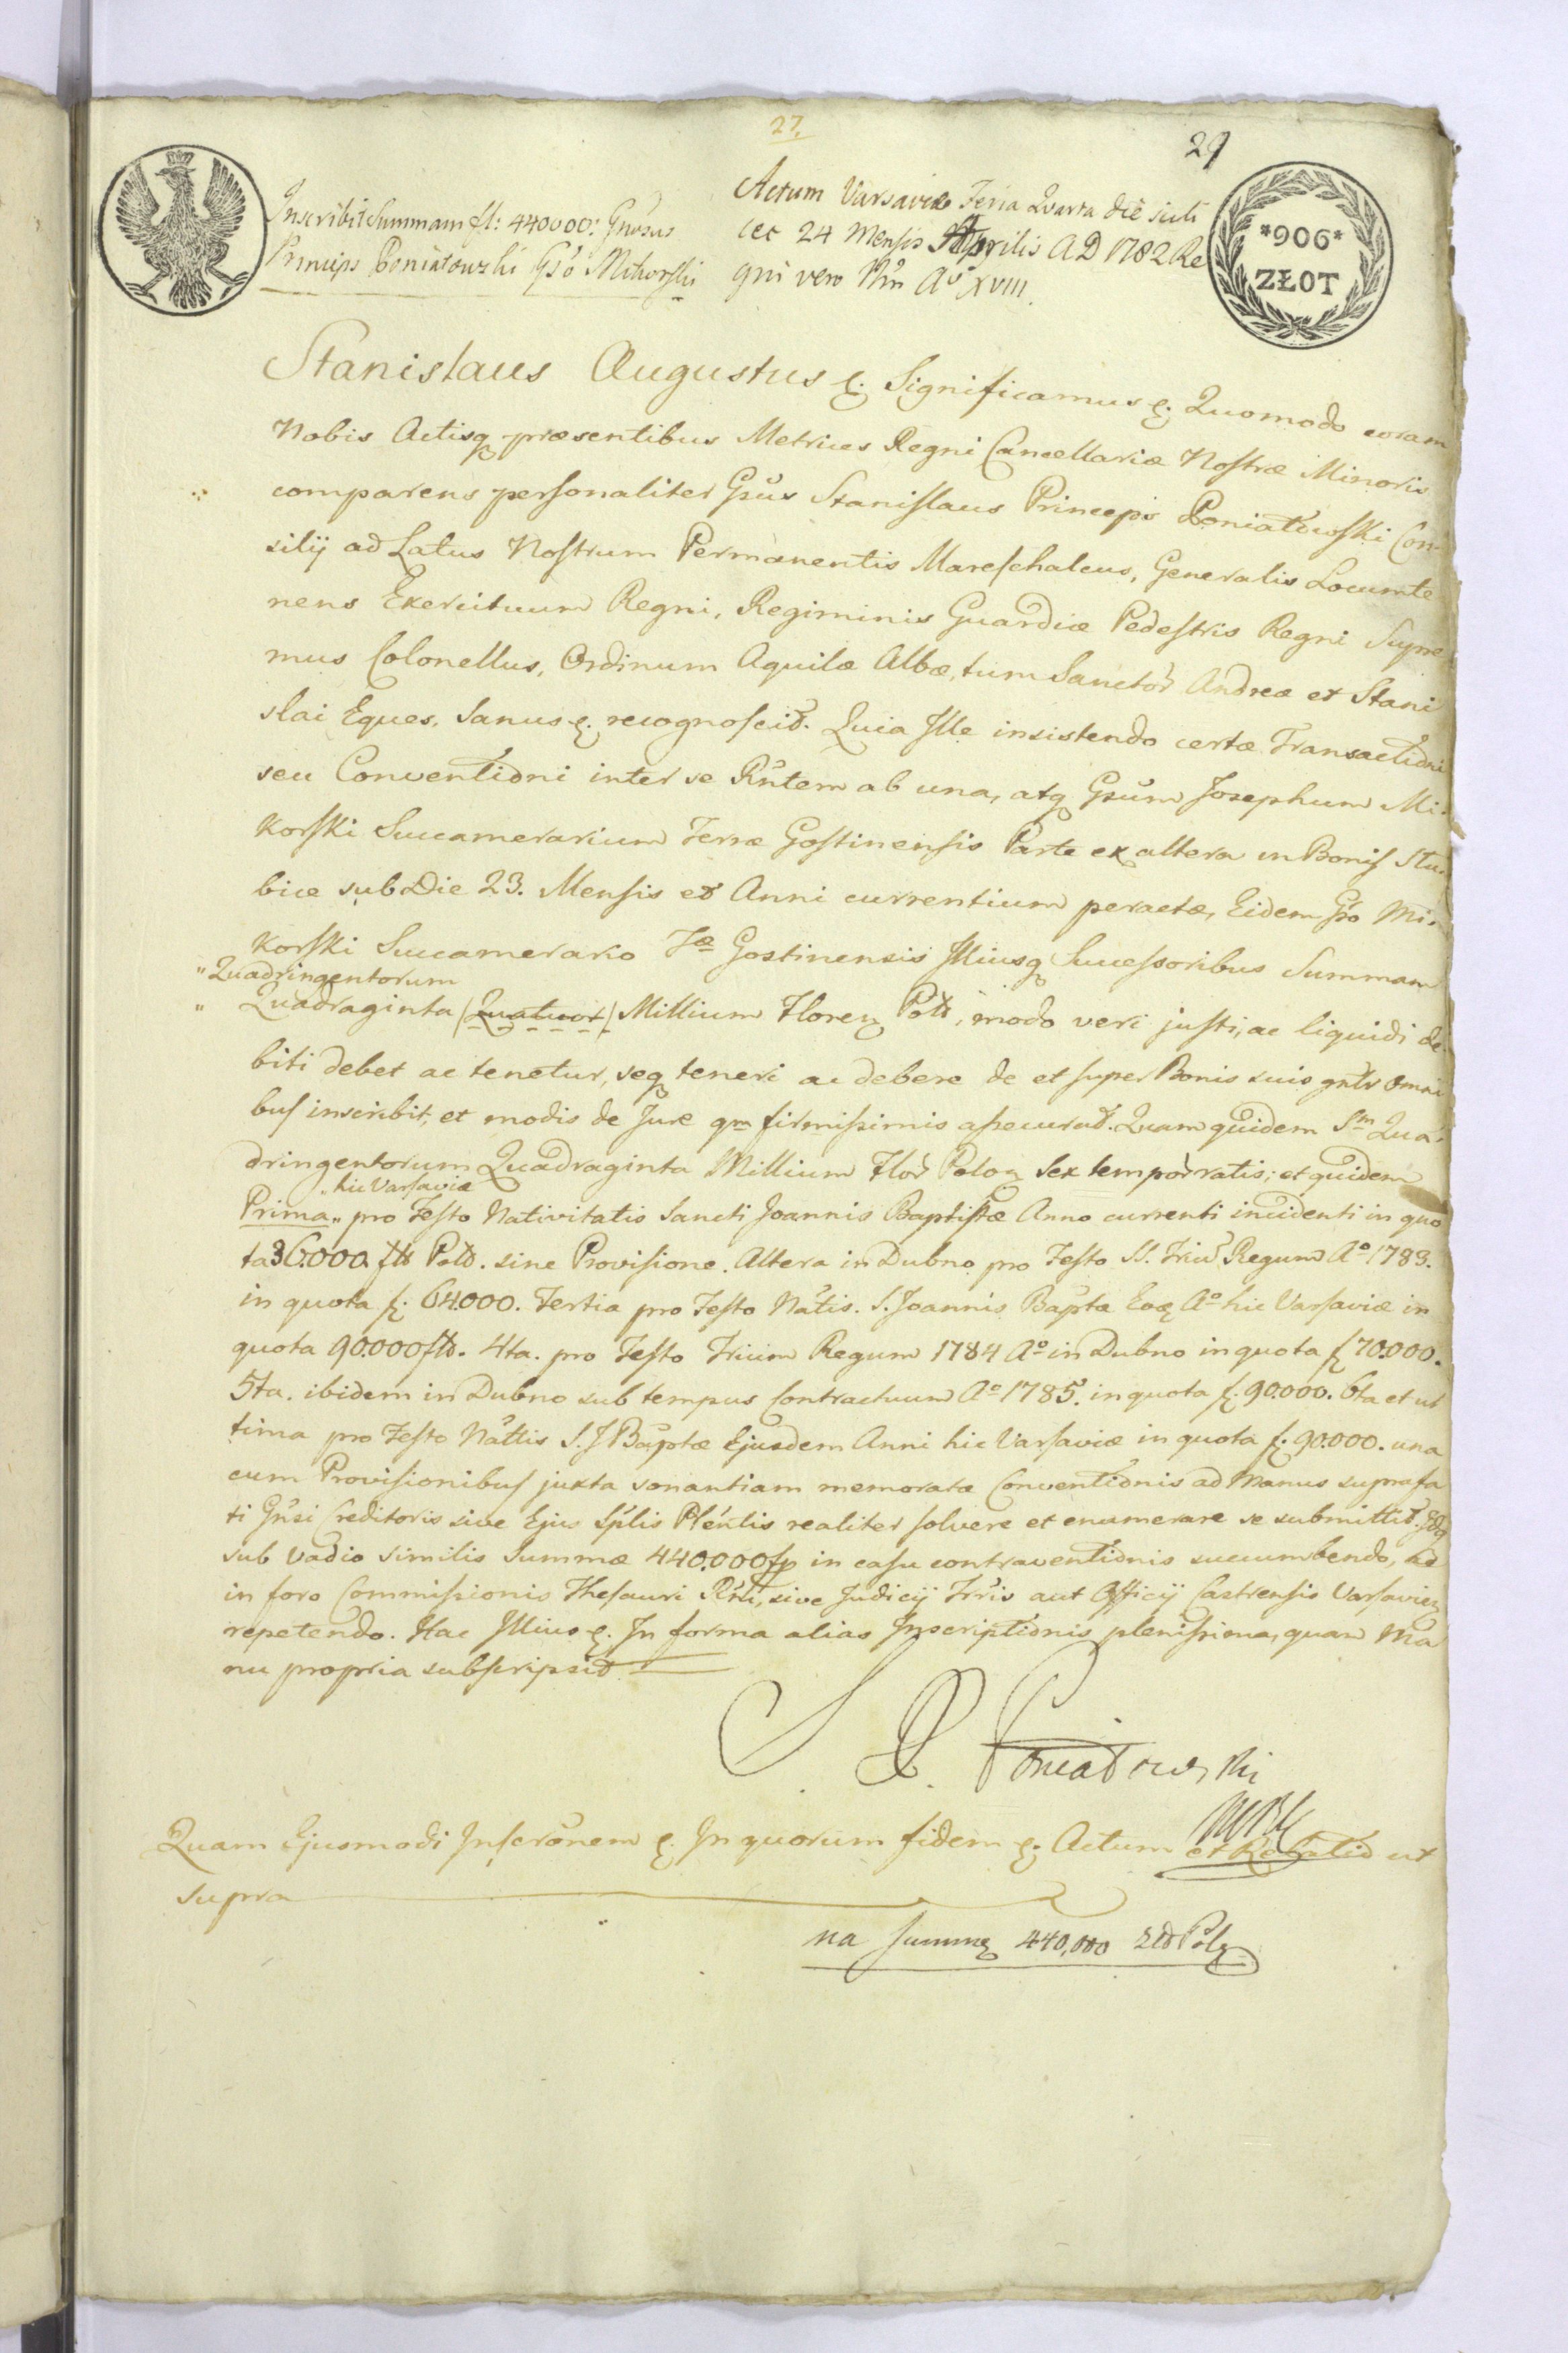 27.
29
Inscribit Summam fl: 440000: Gnosus
Princips Poniatowzki Gso Mikorski
Actum Varsaviæ Feria Quarta die scili
cet 24 Mensis Aprilis A D 1782 Re
gni vero Nri Ao XVIII.
*906*
ZŁOT
Stanislaus Augustus &. Significamus &. Quomodo coram
Nobis Actisq præsentibus Metrices Regni Cancellariæ Nostræ Minoris
comparens personaliter Gsus Stanislaus Princeps Poniatowski Con-
silij ad Latus Nostrum Permanentis Mareschalcus, Generalis Locumte
nens Exercituum Regni, Regiminis Guardiæ Pedestris Regni Supre
mus Colonellus, Ordinum Aquilæ Albæ, tum Sanctor Andreæ et Stani
slai Eques, Sanus &. recognoscit. Quia Ille insistendo certæ Transactioni
seu Conventioni inter se Rntem ab una, atq Gsum Josephum Mi-
korski Succamerarium Terræ Gostinensis Parte ex altera in Bonis Stu-
bice sub Die 23. Mensis et Anni currentium peractæ, Eidem Gso Mi-
korski Succamerario Tæ Gostinensis Illiusq Successoribus Summam
" Quadringentorum
" Quadraginta (Quatuor) Millium Floren Pold, modo veri justi, ac liquidi de
biti debet ac tenetur, seq teneri ac debere de et super Bonis suis gntr omni
bus inscribit, et modis de Jure qm firmissimis assecurat. Quam quidem Sm Qua-
dringentorum Quadraginta Millium Flor Polon Sex tempor ratis; et quidem
" hic Varsaviæ
Prima " pro Festo Nativitatis Sancti Joannis Baptistæ Anno currenti incidenti in quo
ta 36.000 fld Pold. sine Provisione. Altera in Dubno pro Festo SS. Triu Regum Ao 1783.
in quota f. 64.000. Tertia pro Festo Natis. S. Joannis Baptæ Eoq Ao hic Varsaviæ in
quota 90.000 fld. 4ta. pro Festo Trium Regum 1784 Ao in Dubno in quota f 70.000.
5ta. ibidem in Dubno sub tempus Contractuum Ao 1785. in quota f. 90.000. 6ta et ul
tima pro Festo Nattis S. J Baptæ Ejusdem Anni hic Varsaviæ in quota f. 90.000. una
cum Provisionibus juxta sonantiam memoratæ Conventionis ad Manus suprafa
ti Gnsi Creditoris sive Ejus Splis Plentis realiter solvere et enumerare se submittit.
sub Vadio similis Summæ 440.000 fp in casu contraventionis succumbendo, ac
in foro Commissionis Thesauri Rni, sive Judicij Trris aut Officij Castrensis Varsavien
repetendo. Hac Illius &. In forma alias Inscriptionis plenissima, quam Ma
nu propria subscripsit
S P. Poniatowski
Quam Ejusmodi Inscronem &. In quorum fidem &. Actum et Relatio ut
supra
na summę 440,000 Złd Polz